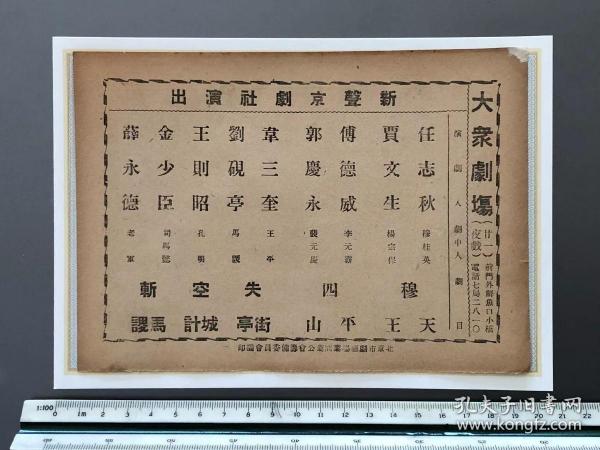 大衆劇場
(廿一)
(夜戲)
前門外鮮魚口小橋
電話七局二八一〇
演劇人 劇中人 劇目
新聲京劇社演出
任志秋 穆桂英
賈文生 楊宗保
傅德威 李元霸
郭慶永 裴元慶
韋三奎 王平
劉硯亭 馬謖
王則昭 孔明
金少臣 司馬懿
薛永德 老軍
穆 天王
四 平山
失 街亭
空 城計
斬 馬謖
1:100
0 1m 2 3 4 5 6 7 8 9 10 11 12 13 14 15 16 17 18 19 20 21 22
孔夫子旧书网
www.kongfz.com